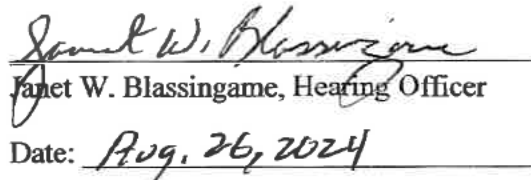 Janet W. Blassingame
Janet W. Blassingame, Hearing Officer
Date: Aug. 26, 2024